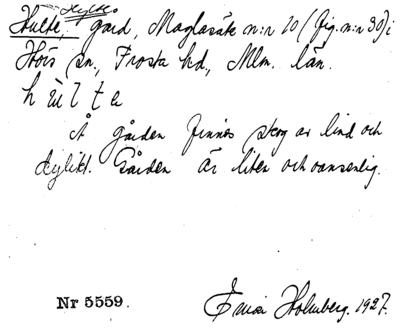 Hylte
Hulte, gård, Maglasäte n:r 10 (fig. n:r 30) i
Hörs sn, Frosta hd, Mlm. län.
h ù l t e
Å gården finnes skog av lind och
dylikt. Gården är liten och oansenlig.
Nr 5559.
Holmberg. 1927.